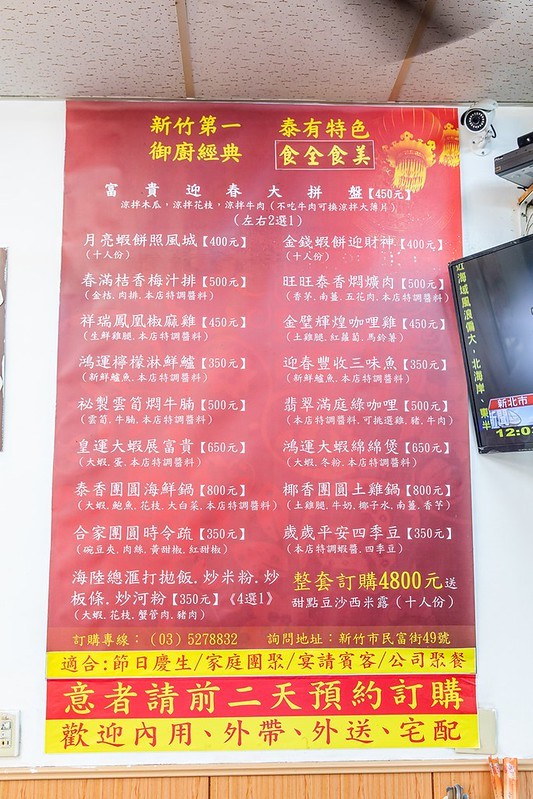 新竹第一 泰有特色
御廚經典 食全食美
富貴迎春大拼盤【450元】
涼拌木瓜,涼拌花枝,涼拌牛肉(不吃牛肉可換涼拌大薄片)
(左右2選1)
月亮蝦餅照風城【400元】 金錢蝦餅迎財神【400元】
(十人份) (十人份)
春滿桔香梅汁排【500元】 旺旺泰香燜爌肉【500元】
(金桔.肉排.本店特調醬料) (香茅.南薑.五花肉.本店特調醬料)
祥瑞鳳凰椒麻雞【450元】 金壁輝煌咖哩雞【450元】
(生鮮雞腿.本店特調醬料) (土雞腿.紅蘿蔔.馬鈴薯)
鴻運檸檬淋鮮鱸【350元】 迎春豐收三味魚【350元】
(新鮮鱸魚.本店特調醬料) (新鮮鱸魚.本店特調醬料)
祕製雲筍燜牛腩【500元】 翡翠滿庭綠咖哩【500元】
(雲筍.牛腩.本店特調醬料) (本店特調醬料.可挑選雞.豬.牛肉)
皇運大蝦展富貴【650元】 鴻運大蝦綿綿煲【650元】
(大蝦.蛋.本店特調醬料) (大蝦.冬粉.本店特調醬料)
泰香團圓海鮮鍋【800元】 椰香團圓土雞鍋【800元】
(大蝦.鮑魚.花枝.大白菜.本店特調醬料) (土雞腿.牛奶.椰子水.南薑.香茅)
合家團圓時令疏【350元】 歲歲平安四季豆【350元】
(碗豆夾.肉絲.黃甜椒.紅甜椒) (本店特調蝦醬.四季豆)
海陸總滙打拋飯.炒米粉.炒 整套訂購4800元送
板條.炒河粉【350元】《4選1》 甜點豆沙西米露(十人份)
(大蝦.花枝.蟹管肉.豬肉)
訂購專線:(03)5278832 詢問地址:新竹市民富街49號
適合:節日慶生/家庭團聚/宴請賓客/公司聚餐
意者請前二天預約訂購
歡迎內用、外帶、外送、宅配
近海域風浪偏大,北海岸、東半
新北市